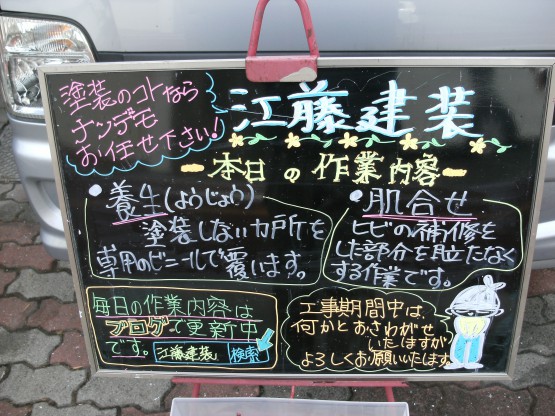 塗装のコトなら
ナンデモ
お任せ下さい!
江藤建装
本日の作業内容
・養生(ようじょう)
塗装しないカ戸所を
専用のビニールで覆います。
・肌合せ
ヒビの補修を
した部分を目立たなく
する作業です。
毎日の作業内容は
ブログで更新中
です。
江藤建装 検索
工事期間中は、
何かとおさわがせ
いたしますが
よろしくお願いいたします